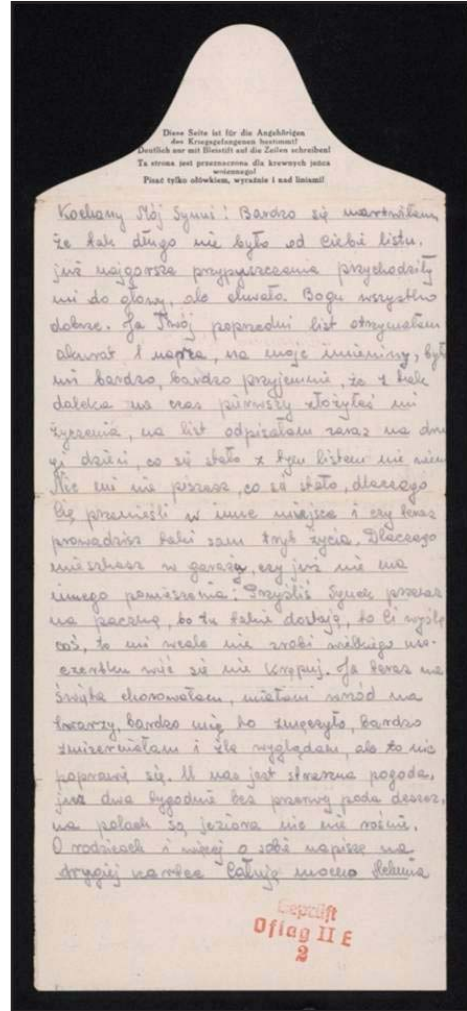 Diese Seite ist für die Angehörigen
des Kriegsgefangenen bestimmt!
Deutlich nur mit Bleistift auf die Zeilen schreiben!
Ta strona jest przeznaczona dla krewnych jeńca
wojennego!
Pisać tylko ołówkiem, wyraźnie i nad liniami!
Kochany Mój Synuś! Bardzo się martwiłam
że tak długo nie było od Ciebie listu,
już najgorsze przypuszczenia przychodziły
mi do głowy, ale chwała Bogu wszystko
dobrze. Ja Twój poprzedni list otrzymałam
akurat 1 marca, na moje imieniny, było
mi bardzo, bardzo przyjemnie, że z tak
daleka na czas pierwszy złożyłeś mi
życzenia, na list odpisałam zaraz na dru
gi dzień, co się stało z tym listem nie wiem
Nic mi nie piszesz, co się stało, dlaczego
Cię przenieśli w inne miejsce i czy teraz
prowadzisz taki sam tryb życia. Dlaczego
mieszkasz w garażu, czy już nie ma
innego pomieszczenia? Przyślij Synuś
na paczkę, bo tu ludzie dostają, to Ci wyślę
coś, to mi wcale nie zrobi wielkiego usz-
czerbku więc się nie krępuj. Ja teraz na
święta chorowałam, miałam wrzód na
twarzy, bardzo mię to zmęczyło, bardzo
zmizerniałam i źle wyglądam, ale to nic
poprawię się. U nas jest straszna pogoda,
już dwa tygodnie bez przerwy pada deszcz,
na polach są jeziora nic nie rośnie.
O rodzicach i więcej o sobie napiszę na
drugiej kartce Całuję mocno Helunia
Geprüft
Oflag II E
2